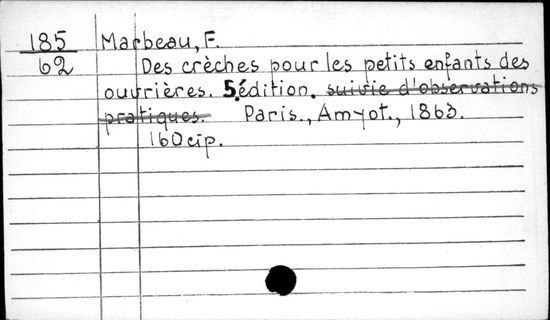 185 Marbeau, F.
62 Des crèches pour les petits enfants des
ouvrières. 5.édition. suivie d'observations
pratiques. Paris., Amyot., 1863.
160 cip.